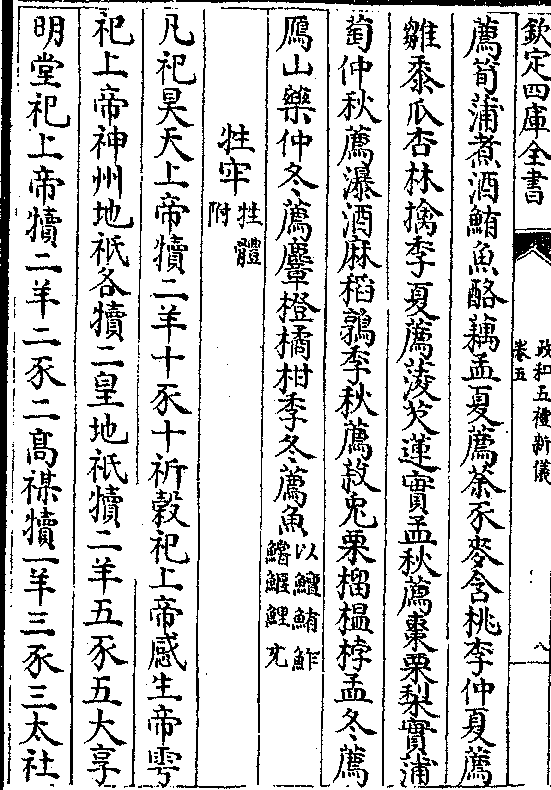 欽定四庫全書
政和五禮新儀
卷五
八
薦筍蒲煮酒鮪魚酪藕孟夏薦荼豕麥含桃李仲夏薦
雛黍瓜杏林擒李夏薦菱芡蓮實孟秋薦棗栗梨實蒲
萄仲秋薦瀑酒麻稻鶉季秋薦菽兎栗榴榲桲孟冬薦
鴈山藥仲冬薦麞橙橘柑季冬薦魚以鱣鮪鮓
鱨鰋鯉充
牲牢牲體
附
凡祀昊天上帝犢二羊十豕十祈榖祀上帝感生帝雩
祀上帝神州地祇各犢二皇地祇犢二羊五豕五大享
明堂祀上帝犢二羊二豕二高禖犢一羊三豕三太社